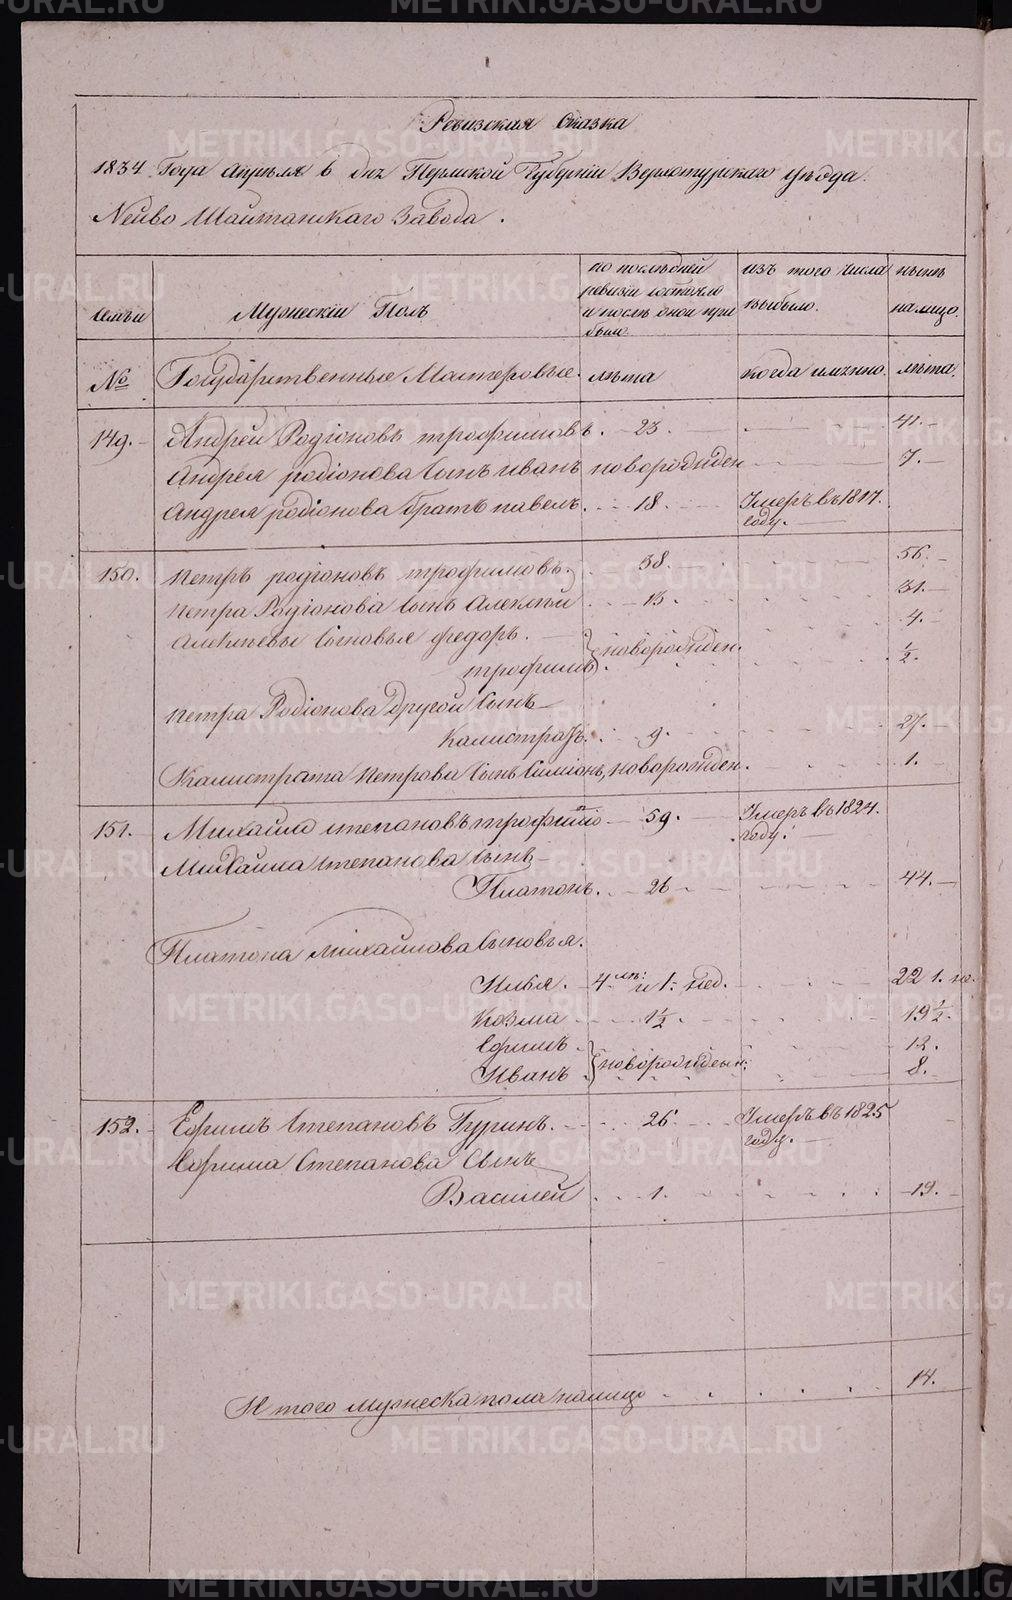 Ревизская Сказка
1834 Года Апреля 6 дня Пермской Губернии Верхотурскаго уѣзда.
Нейво Шайтанскаго Завода.
семьи
Мужескій Полъ
по послѣдней ревизіи состояло и послѣ оной при был.
изъ того числа выбыло.
нынѣ на лицо.
№ Государственные Мастеровые. лѣта когда имянно. лѣта.
149. Андрей Родіоновъ трофимовъ. 23. 41.
Андрея родіонова Сынъ иванъ новорожден 7.
Андрея родіонова братъ павелъ. 18. Умеръ въ 1817. году.
150. петръ родіоновъ трофимовъ. 38. 56.
петра Родіонова Сынъ Алексѣй 13. 31.
Алексѣевы Сыновья федоръ. 4.
трофимъ. новорожден. ½.
петра Родіонова другой Сынъ
Калистратъ. 9. 27.
Калистрата Петрова Сынъ Симіонъ, новорожден. 1.
151. Михайла степановъ трофимо 59. Умеръ въ 1824. году.
Михайла Степанова Сынъ
Платонъ. 26 44.
Платона михайлова Сыновья.
Илья. 4 лѣ: и 1. нед. 22 1. не.
Козма 1½. 19½.
Ефимъ 12.
Иванъ новорожденн: 8.
152. Ефимъ Степановъ Гуринъ. 26. Умеръ въ 1825 году.
Ефима Степанова Сынъ
Василей 1. 19.
И того мужеска пола налицо 14.
METRIKI.GASO-URAL.RU